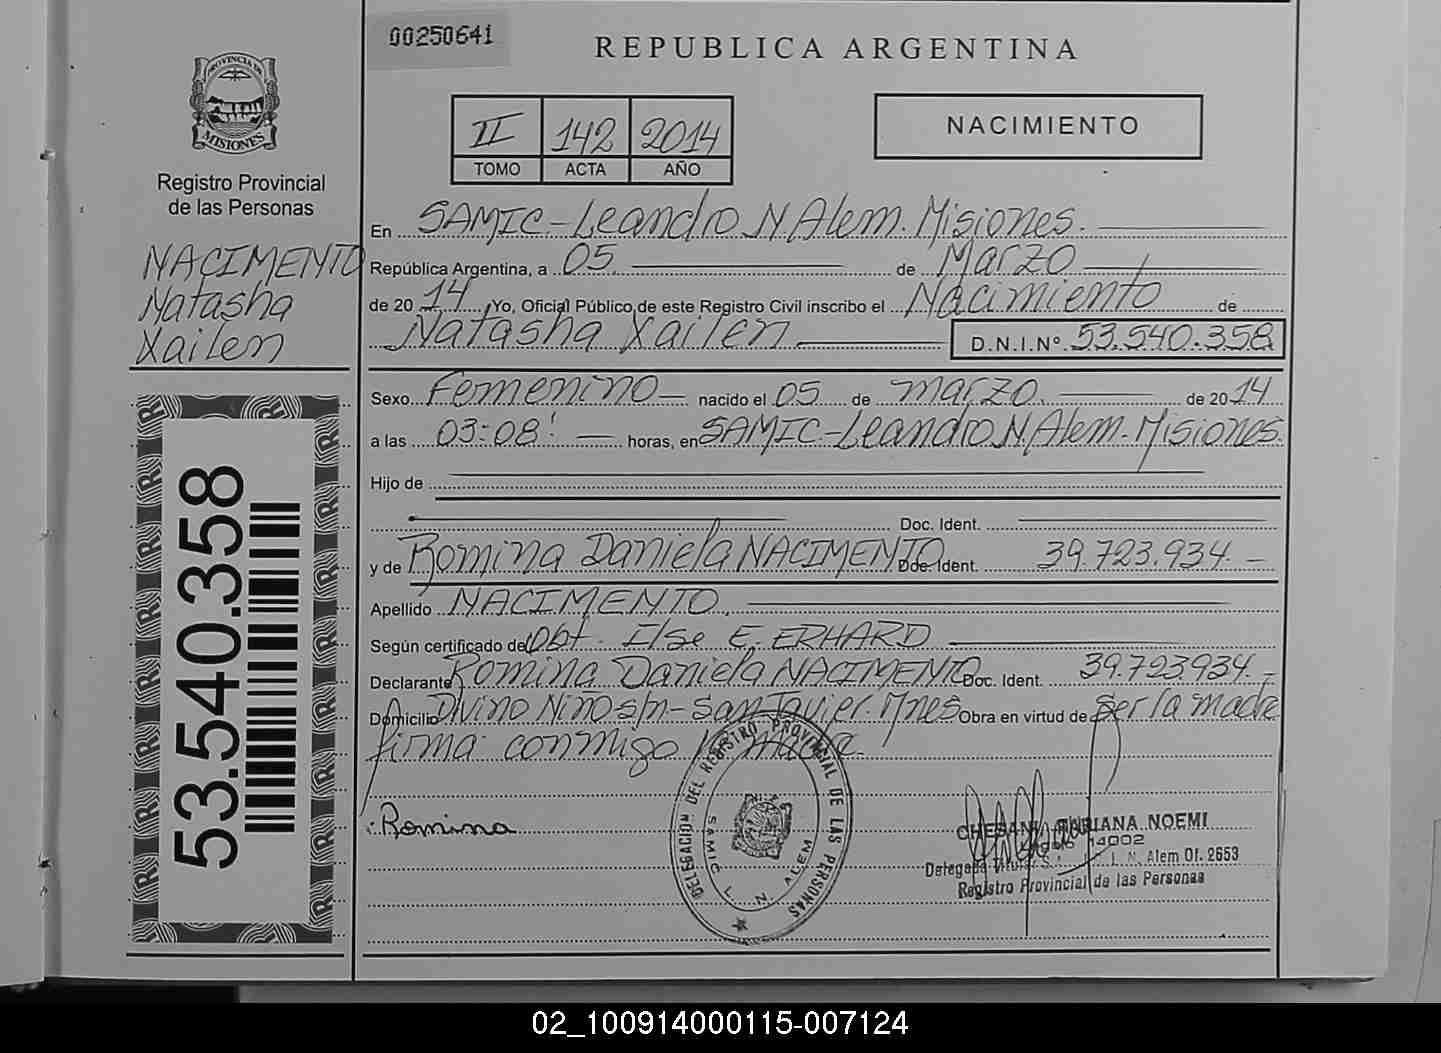 00250641
REPUBLICA ARGENTINA
PROVINCIA DE
MISIONES
II 142 2014
TOMO ACTA AÑO
NACIMIENTO
Registro Provincial
de las Personas
NACIMENTO
Natasha
Xailen
En SAMIC-Leandro N Alem. Misiones.
República Argentina, a 05 de Marzo
de 20 14 Yo, Oficial Público de este Registro Civil inscribo el Nacimiento de
Natasha Xailen D.N.I.Nº 53.540.358
Sexo Femenino nacido el 05 de marzo de 20 14
a las 03:08' horas, en SAMIC-Leandro N. Alem. Misiones.
Hijo de
Doc. Ident.
y de Romina Daniela NACIMENTO Doc. Ident. 39.723.934.-
Apellido NACIMENTO.
Según certificado de Obt. Ilse E. ERHARD
Declarante Romina Daniela NACIMENTO Doc. Ident. 39.723.934.-
Domicilio Divino Niño s/n- San Javier. Mnes Obra en virtud de ser la madre
firma conmigo la madre.
Romina
53.540.358
DELEGACION DEL REGISTRO PROVINCIAL DE LAS PERSONAS
SAMIC L. N. ALEM
NOEMI
14002
L. N. Alem Of. 2653
Registro Provincial de las Personas
02_100914000115-007124